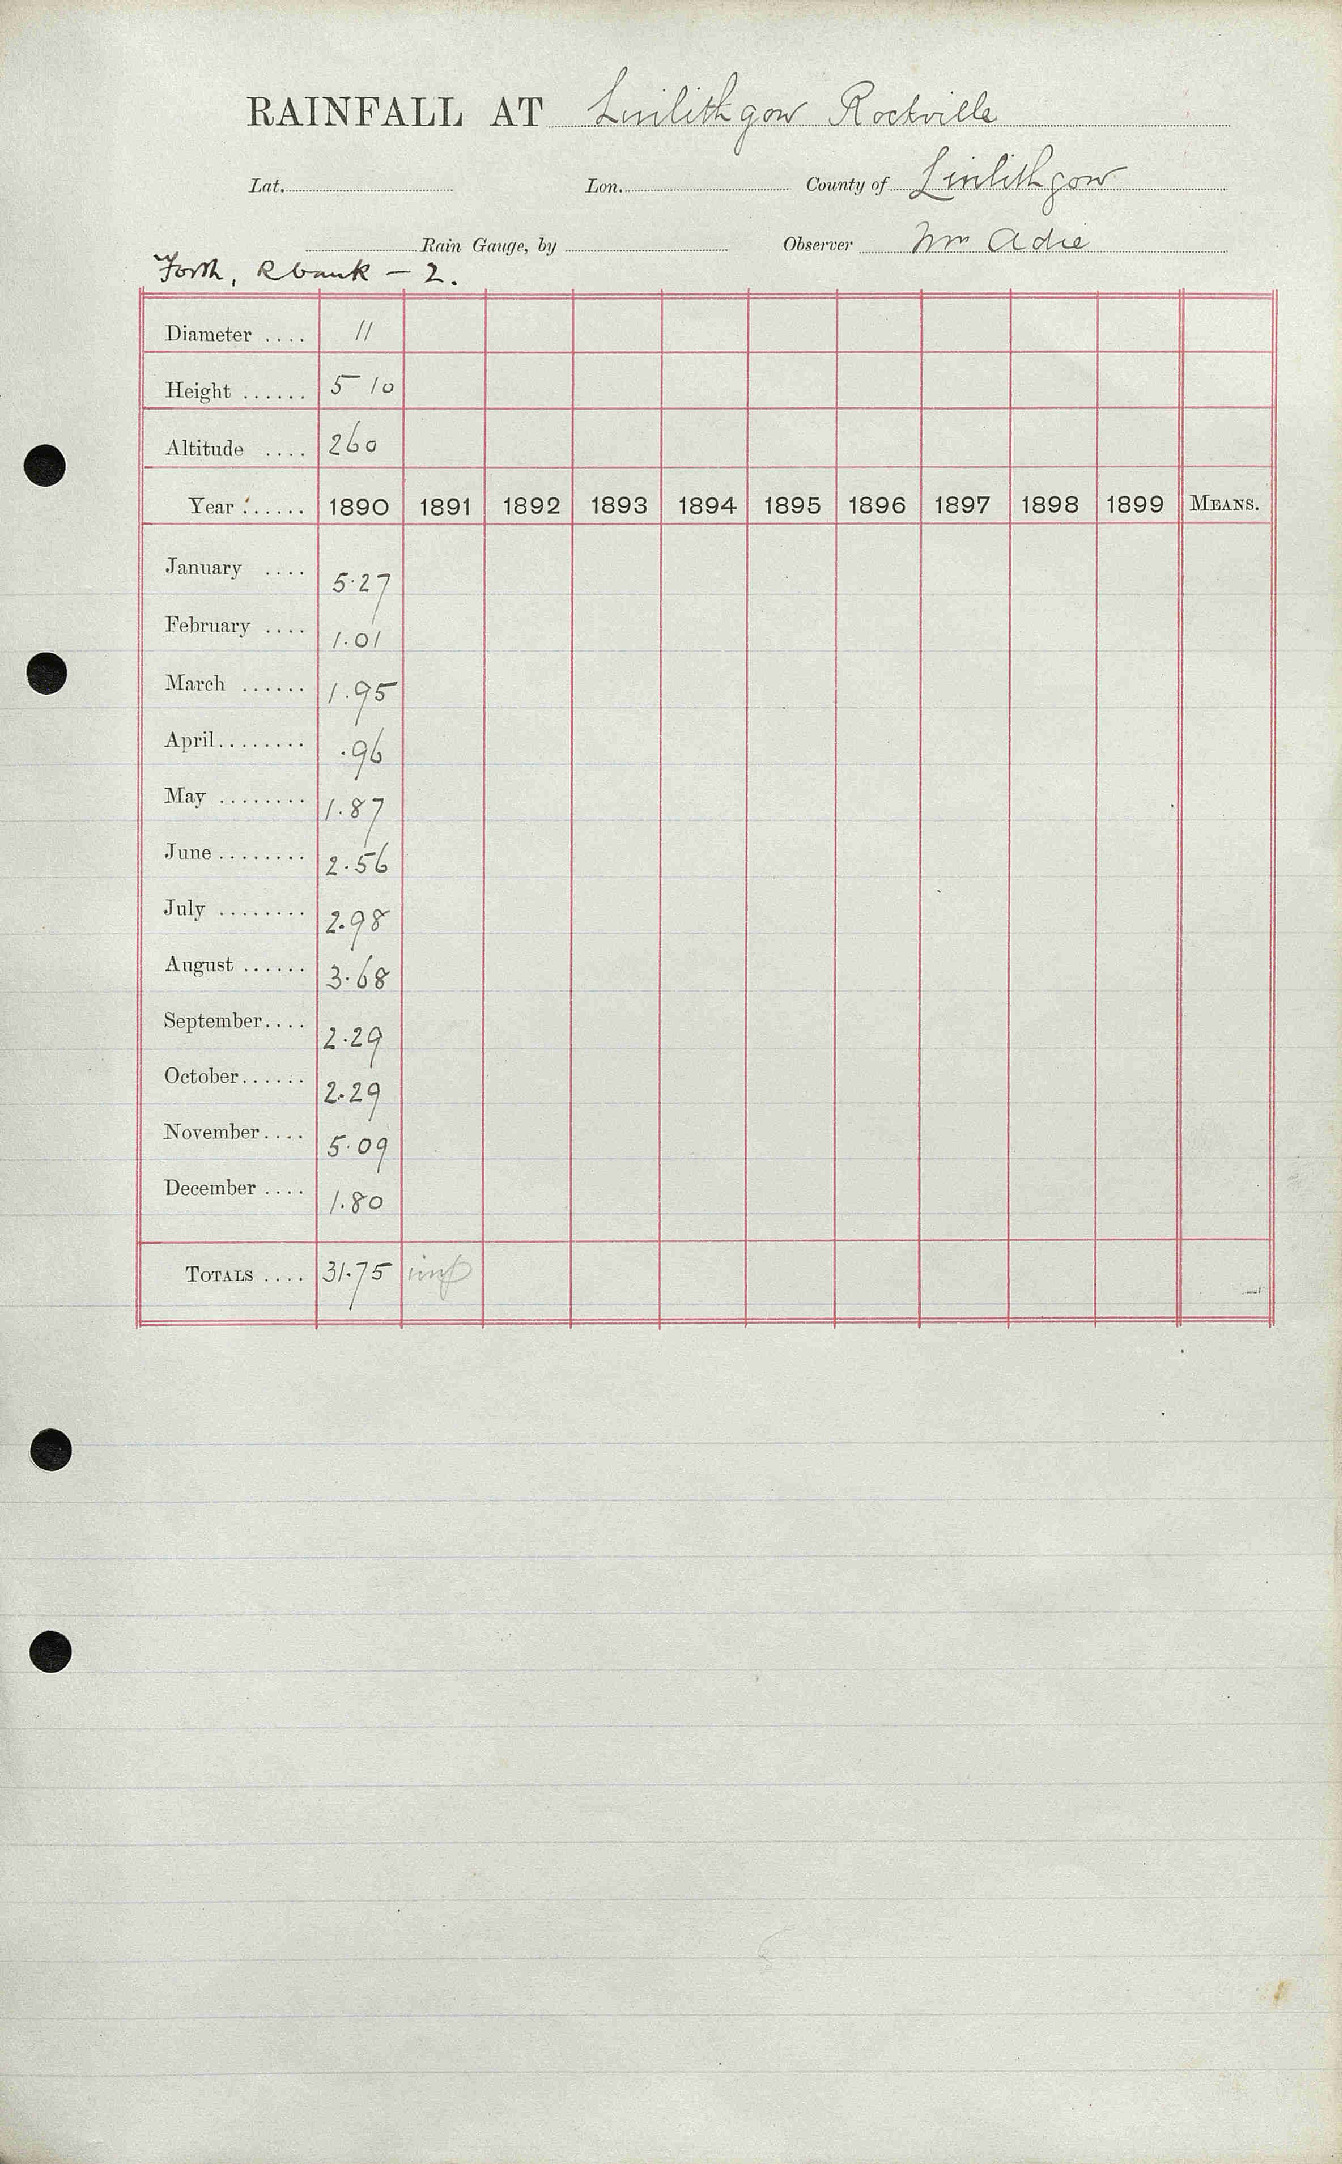 RAINFALL AT Linlithgow Rockville
Lat. Lon. County of Linlithgow
Rain Gauge, by Observer Wm Adie
Forth, R bank – 2.
Diameter .... 11
Height ...... 5 10
Altitude .... 260
Year ...... 1890 1891 1892 1893 1894 1895 1896 1897 1898 1899 MEANS.
January .... 5.27
February .... 1.01
March ...... 1.95
April........ .96
May ........ 1.87
June........ 2.56
July ........ 2.98
August ...... 3.68
September.... 2.29
October...... 2.29
November.... 5.09
December .... 1.80
TOTALS .... 31.75 imp